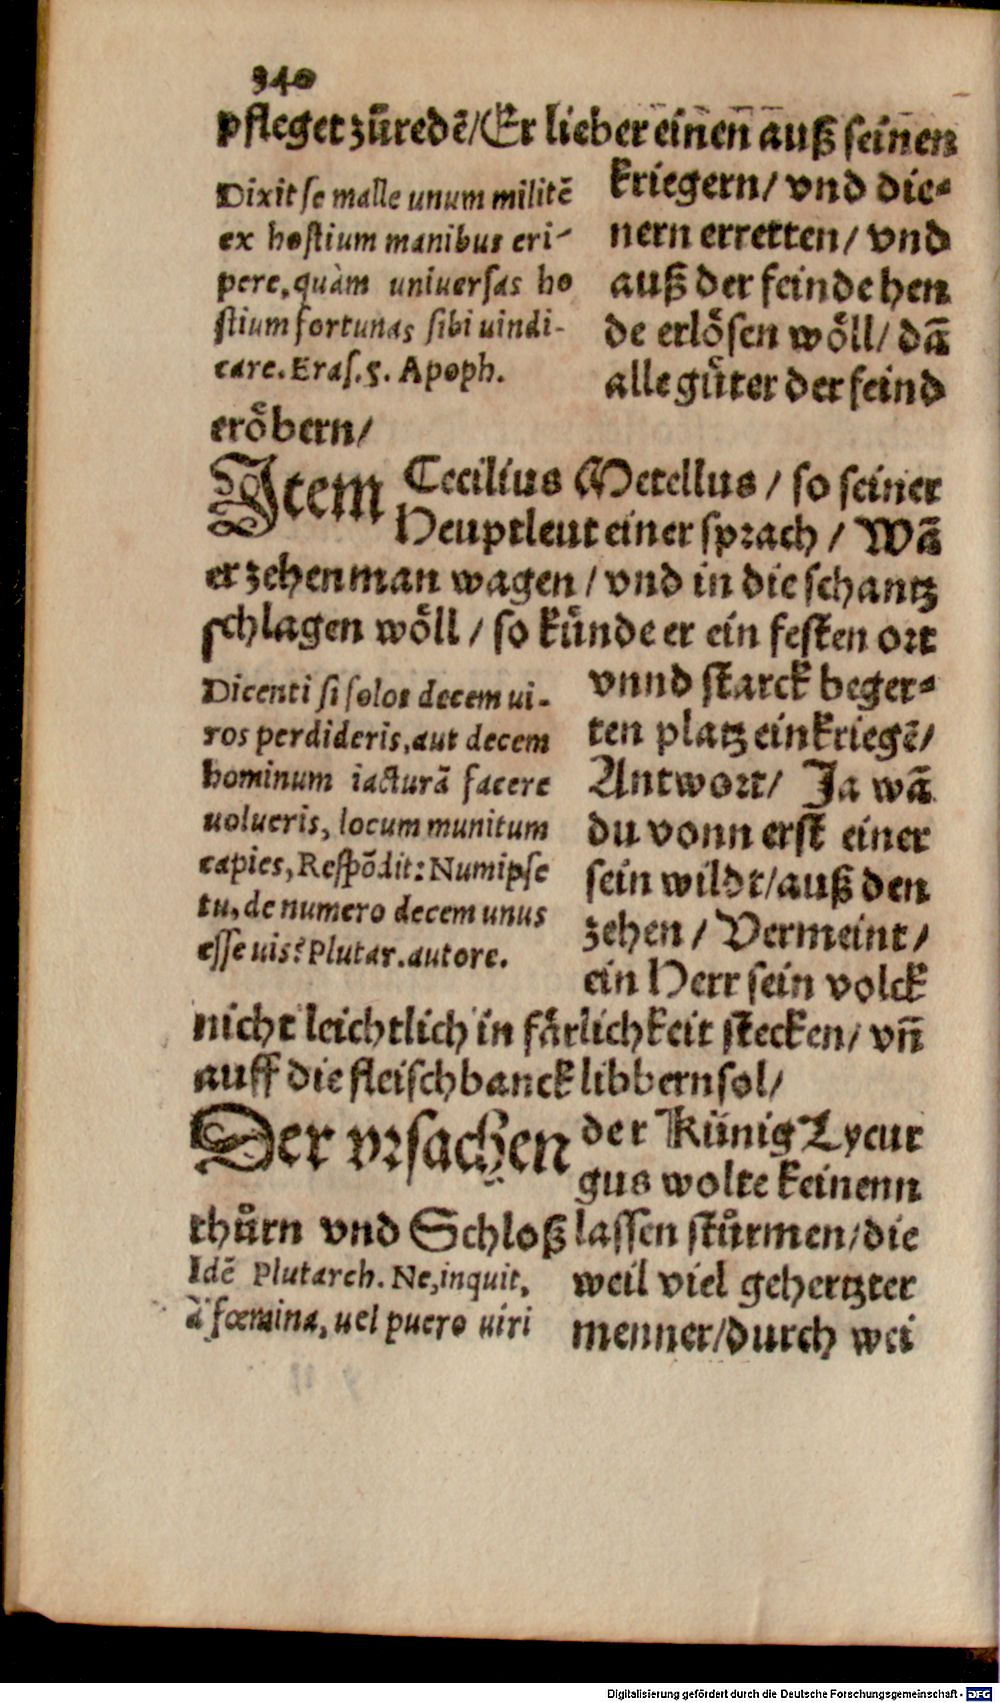 340
pfleget zůredẽ/Er lieber einen auß seinen
Dixit se malle unum militẽ
ex hostium manibus eri-
pere, quàm uniuersas ho
stium fortunas sibi uindi-
care. Eras. 5. Apoph.
kriegern/ vnd die-
nern erretten/ vnd
auß der feinde hen
de erlösen wöll/ dã
alle güter der feind
eröbern/
Item Cecilius Metellus / so seiner
Heuptleut einer sprach / Wã
er zehen man wagen / vnd in die schantz
schlagen wöll / so künde er ein festen ort
Dicenti si solos decem ui-
ros perdideris, aut decem
hominum iacturã facere
uolueris, locum munitum
capies, Respõdit: Num ipse
tu, de numero decem unus
esse uis? Plutar. autore.
vnnd starck beger-
ten platz einkriegẽ/
Antwort/ Ja wã
du vonn erst einer
sein wildt/auß den
zehen / Vermeint /
ein Herr sein volck
nicht leichtlich in färlichkeit stecken/ vñ
auff die fleischbanck libbern sol/
Der vrsachen der Künig Lycur
gus wolte keinenn
thürn vnd Schloß lassen stürmen/die
Idẽ Plutarch. Ne, inquit,
à fœmina, uel puero uiri
weil viel gehertzter
menner/durch wei
Digitalisierung gefördert durch die Deutsche Forschungsgemeinschaft - DFG